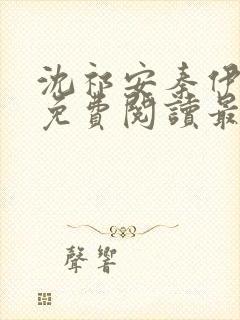 沈祁安秦伊
免費閱讀最
聲響